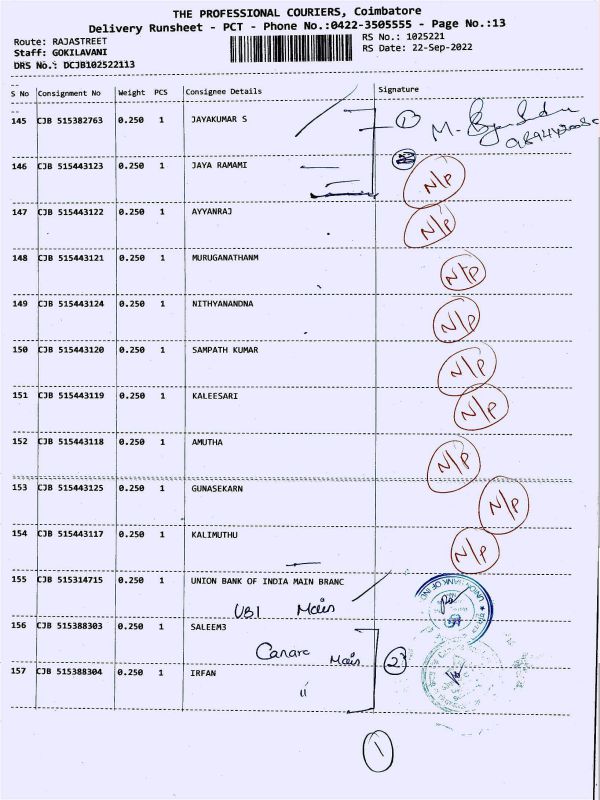 THE PROFESSIONAL COURIERS, Coimbatore
Delivery Runsheet - PCT - Phone No.:0422-3505555 - Page No.:13
Route: RAJASTREET
RS No.: 1025221
Staff: GOKILAVANI
RS Date: 22-Sep-2022
DRS No.: DCJB102522113
S No Consignment No Weight PCS Consignee Details Signature
145 CJB 515382763 0.250 1 JAYAKUMAR S 1
M.
146 CJB 515443123 0.250 1 JAYA RAMAMI N/P
147 CJB 515443122 0.250 1 AYYANRAJ N/P
148 CJB 515443121 0.250 1 MURUGANATHANM N/P
149 CJB 515443124 0.250 1 NITHYANANDNA N/P
150 CJB 515443120 0.250 1 SAMPATH KUMAR N/P
151 CJB 515443119 0.250 1 KALEESARI N/P
152 CJB 515443118 0.250 1 AMUTHA N/P
153 CJB 515443125 0.250 1 GUNASEKARN N/P
154 CJB 515443117 0.250 1 KALIMUTHU N/P
155 CJB 515314715 0.250 1 UNION BANK OF INDIA MAIN BRANC
UBI Main
UNION BANK OF IND
156 CJB 515388303 0.250 1 SALEEM3
Canara Main 2
157 CJB 515388304 0.250 1 IRFAN
11
1